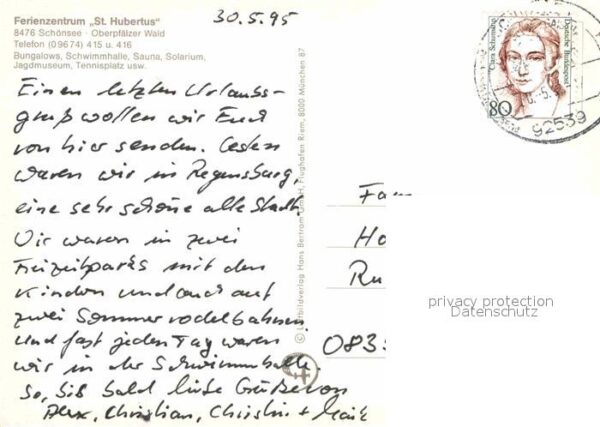 30.5.95
Ferienzentrum „St. Hubertus"
8476 Schönsee · Oberpfälzer Wald
Telefon (0 96 74) 415 u. 416
Bungalows, Schwimmhalle, Sauna, Solarium,
Jagdmuseum, Tennisplatz usw.
Einen letzten Urlaubs-
gruß wollen wir Euch
von hier senden. Gestern
waren wir in Regensburg,
eine sehr schöne alte Stadt.
Wir waren in zwei
Freizeitparks mit den
Kindern und auch auf
zwei Sommerrodelbahnen
Und fast jeden Tag waren
wir in der Schwimmhalle.
So, bis bald liebe Grüße von
Alex, Christian, Christin +
© Luftbildverlag Hans Bertram GmbH, Flughafen Riem, 8000 München 87
Clara Schumann
Deutsche Bundespost
80
92539
Fam
Ho
Ru
083
privacy protection
Datenschutz